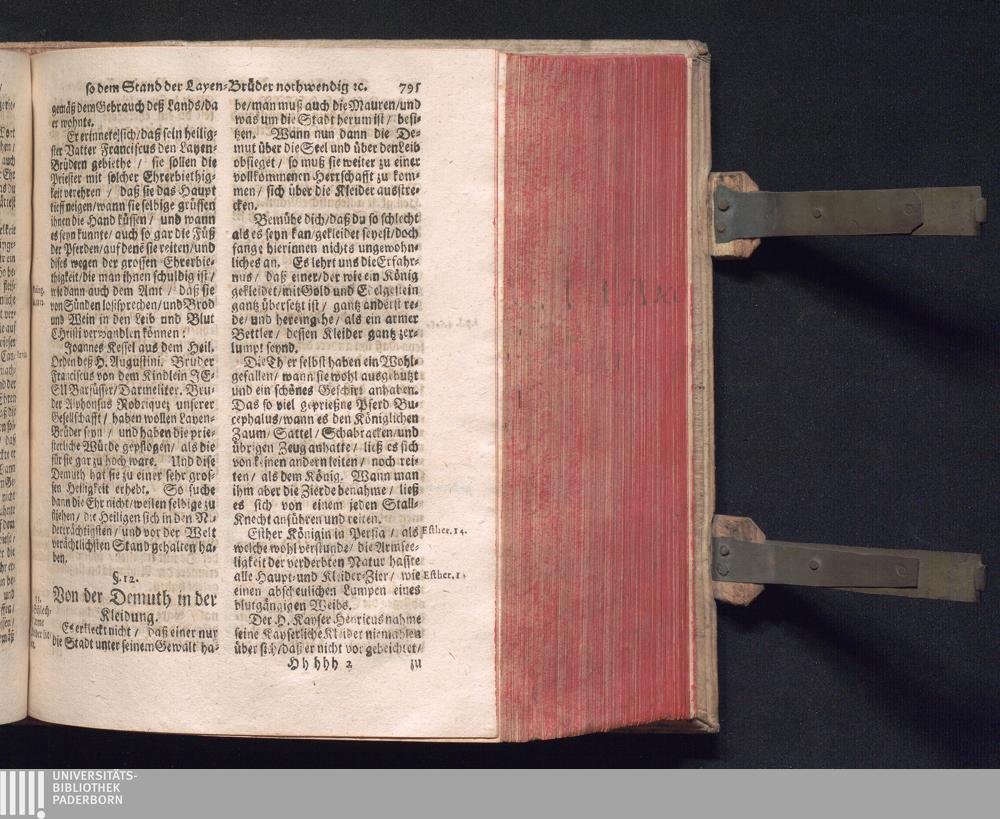 so dem Stand der Layen-Brüder nothwendig ꝛc. 795
gemäß dem Gebrauch deß Lands/da
er wohnte.
Er erinnerte sich/daß sein heilig-
ster Vatter Franciscus den Layen-
Brüdern gebiethe / sie sollen die
Priester mit solcher Ehrerbiethig-
keit verehren / daß sie das Haupt
tieff neigen/wann sie selbige grüssen
ihnen die Hand küssen / und wann
es seyn kunnte/ auch so gar die Füß
der Pferden/auf denē sie reiten/und
dises wegen der grossen Ehrerbie-
thigkeit/die man ihnen schuldig ist /
wie dann auch dem Amt / daß sie
von Sünden loßsprechen/und Brod
und Wein in den Leib und Blut
Christi verwandlen können:
Joannes Kessel aus dem Heil.
Orden deß H. Augustini. Bruder
Franciscus von dem Kindlein JE-
SU Barfüsser/Darmeliter. Bru-
der Alphonsus Rodriquez unserer
Gesellschafft / haben wollen Layen-
Brüder seyn / und haben die prie-
sterliche Würde geflogen/ als die
für sie gar zu hoch ware. Und dise
Demuth hat sie zu einer sehr gros-
sen Heiligkeit erhebt. So suche
dann die Ehr nicht/weilen selbige zu
fliehen / die Heiligen sich in den Ni-
derträchtigsten / und vor der Welt
verächtlichsten Stand gehalten ha-
ben.
§. 12.
Von der Demuth in der
Kleidung.
Es erkleckt nicht / daß einer nur
die Stadt unter seinem Gewalt ha-
be/man muß auch die Mauren/und
was um die Stadt herum ist / besi-
tzen. Wann nun dann die De-
mut über die Seel und über den Leib
obsieget / so muß sie weiter zu einer
vollkommenen Herrschafft zu kom-
men / sich über die Kleider ausstre-
cken.
Bemühe dich/daß du so schlecht
als es seyn kan/gekleidet seyest/doch
fange hierinnen nichts ungewohn-
liches an. Es lehrt uns die Erfahr-
nus / daß einer/der wie ein König
gekleidet/mit Gold und Edelgestein
gantz übersetzt ist / gantz anderst re-
de/ und hereingehe/ als ein armer
Bettler / dessen Kleider gantz zer-
lumpt seynd.
Die Thier selbst haben ein Wohl-
gefallen/ wann sie wohl ausgebutzt
und ein schönes Geschirr anhaben.
Das so viel geprießne Pferd Bu-
cephalus/wann es den Königlichen
Zaum/Sattel/Schabracken/und
übrigen Zeug anhatte/ ließ es sich
von keinen andern leiten / noch rei-
ten / als dem König. Wann man
ihm aber die Zierde benahme / ließ
es sich von einem jeden Stall-
Knecht anführen und reiten.
Esther Königin in Persia / als
welche wohl verstunde/ die Armsee-
ligkeit der verderbten Natur hassete
alle Haupt-und Kleider-Zier / wie
einen abscheulichen Lumpen eines
blutgängigen Weibs.
Der H. Kayser Henricus nahme
seine Kayserliche Kleider niemahlen
über sich/daß er nicht vor gebeichtet/
Esther. 14.
Hh hhh 2 zu
UNIVERSITÄTS-
BIBLIOTHEK
PADERBORN